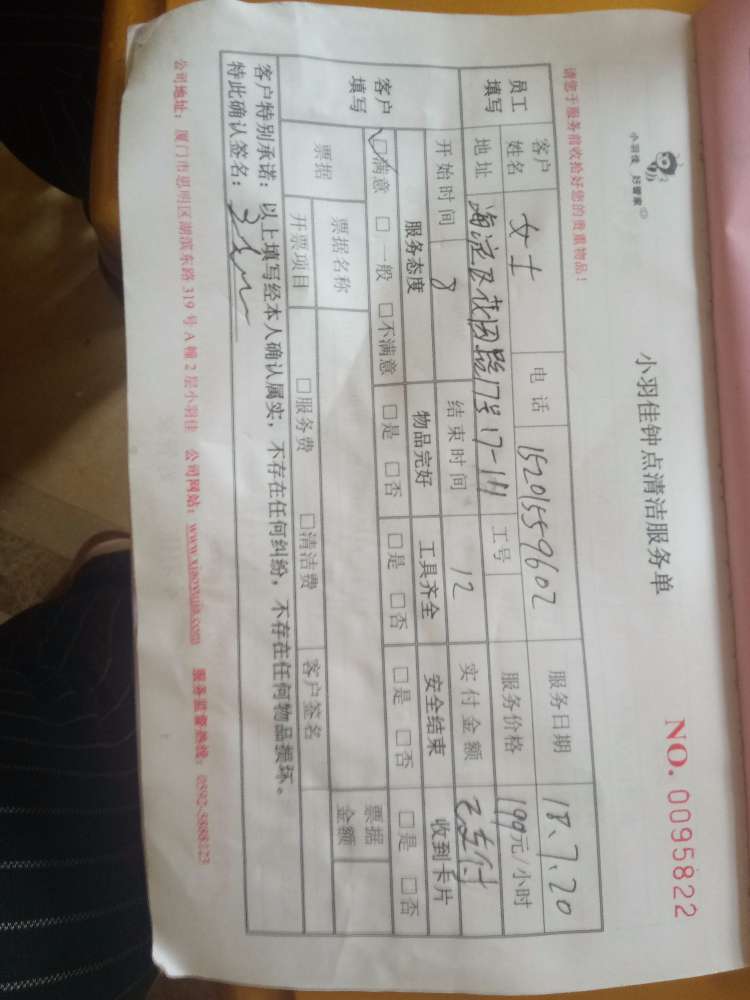 小羽佳 好管家
小羽佳钟点清洁服务单
NO. 0095822
请您于服务前收拾好您的贵重物品!
员工填写 客户姓名 女士 电话 15201559602 服务日期 18.7.20
地址 海淀区花园路17号17-111 工号 服务价格 199元/小时
开始时间 8 结束时间 12 实付金额 已支付
客户填写 服务态度 物品完好 工具齐全 安全结束 收到卡片
☑满意 □一般 □不满意 □是 □否 □是 □否 □是 □否 □是 □否
票据 票据名称 票据金额
开票项目 □服务费 □清洁费 客户签名
客户特别承诺:以上填写经本人确认属实,不存在任何纠纷,不存在任何物品损坏。
特此确认签名:
公司地址:厦门市思明区湖滨东路319号A幢2层小羽佳 公司网站:www.xiaoyujia.com 服务监督热线:0592-5888123